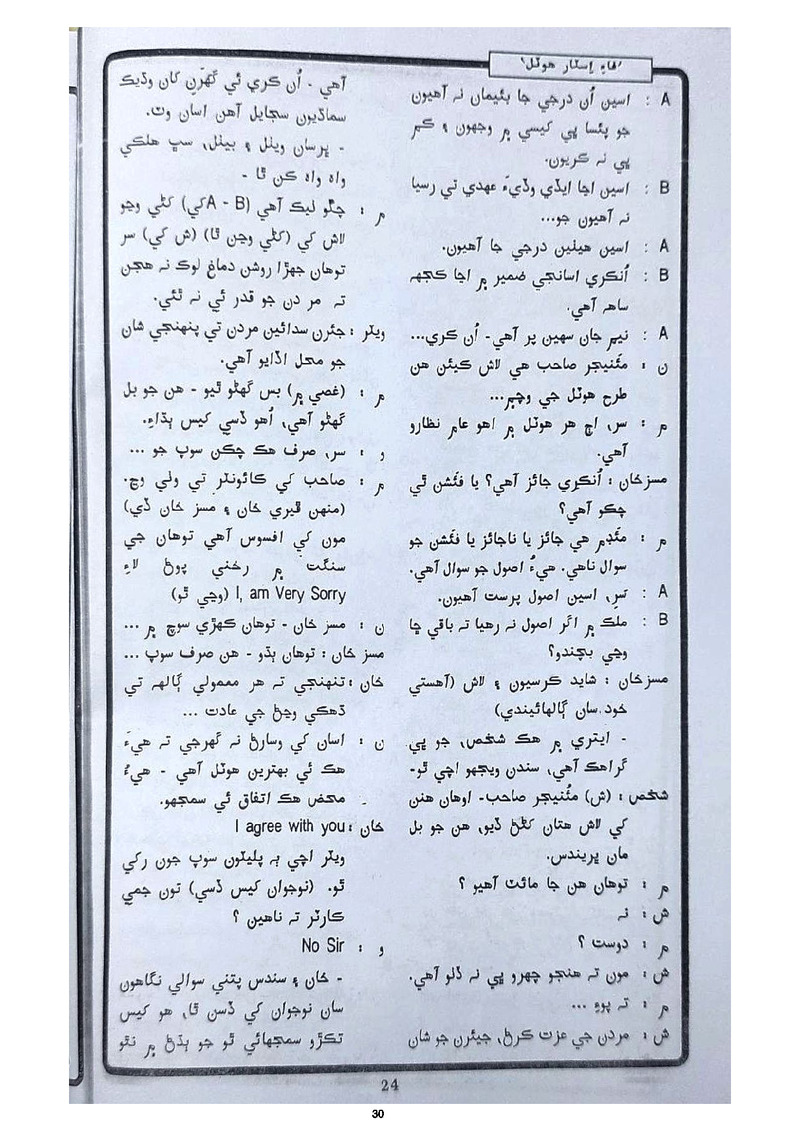 ’فاءِ اِسٽار هوٽل‘
A : اسين اُن درجي جا بئيمان نہ آهيون
جو پئسا پي کيسي ۾ وجهون ۽ ڪم
پي نہ ڪريون.
B : اسين اڃا ايڏي وڏيءَ عهدي تي رسيا
نہ آهيون جو...
A : اسين هيٺين درجي جا آهيون.
B : اُنڪري اسانجي ضمير ۾ اڃا ڪجهہ
ساهہ آهي.
A : نيم جان سهين پر آهي- اُن ڪري...
ن : مئنيجر صاحب هي لاش ڪيئن هن
طرح هوٽل جي وچم...
م : سر، اڄ هر هوٽل ۾ اهو عام نظارو
آهي.
مسز خان : اُنڪري جائز آهي؟ يا فئشن ٿي
چڪو آهي؟
م : مئڊم هي جائز يا ناجائز يا فئشن جو
سوال ناهي. هيءُ اصول جو سوال آهي.
A : سَرِ، اسين اصول پرست آهيون.
B : ملڪ ۾ اگر اصول نہ رهيا تہ باقي ڇا
وڃي بچندو؟
مسز خان : شايد ڪرسيون ۽ لاش (آهستي
خود سان ڳالهائيندي)
- ايتري ۾ هڪ شخص، جو پي
گراهڪ آهي، سندن ويجهو اچي ٿو-
شخص : (ش) مئنيجر صاحب- اوهان هنن
کي لاش هتان کڻڻ ڏيو، هن جو بل
مان ڀريندس.
م : توهان هن جا مائٽ آهيو ؟
ش : نہ
م : دوست ؟
ش : مون تہ هنجو چهرو پي نہ ڏٺو آهي.
م : تہ پوءِ ...
ش : مردن جي عزت ڪرڻ، جيئرن جو شان
آهي - اُن ڪري ئي گهَرن کان وڌيڪ
سماڌيون سجايل آهن اسان وٽ.
- ڀرسان ويٺل ۽ بيٺل، سڀ هلڪي
واه واه ڪن ٿا -
م : چڱو ٺيڪ آهي (A - Bکي) کڻي وڃو
لاش کي (کڻي وڃن ٿا) (ش کي) سر
توهان جهڙا روشن دماغ لوڪ نہ هجن
تہ مردن جو قدر ئي نہ ٿئي.
ويٽر : جئرن سدائين مردن تي پنهنجي شان
جو محل اڏايو آهي.
م : (غصي ۾) بس گهڻو ٿيو - هن جو بل
گهڻو آهي، اُهو ڏسي کيس ٻڌاءِ.
و : سر، صرف هڪ چڪن سوپ جو ...
م : صاحب کي ڪائونٽر تي وٺي وڃ.
(منهن ڦيري خان ۽ مسز خان ڏي)
مون کي افسوس آهي توهان جي
سنگت ۾ رخني پوڻ لاءِ
I, am Very Sorry (وڃي ٿو)
ن : مسز خان - توهان ڪهڙي سوچ ۾ ...
مسز خان : توهان ٻڌو - هن صرف سوپ ...
خان : تنهنجي تہ هر معمولي ڳالهہ تي
ڌهڪي وڃڻ جي عادت ...
ن : اسان کي وسارڻ نہ گهرجي تہ هيءَ
هڪ ئي بهترين هوٽل آهي - هيءُ
محض هڪ اتفاق ئي سمجهو.
خان : I agree with you
ويٽر اچي ٻہ پليٽون سوپ جون رکي
ٿو. (نوجوان کيس ڏسي) تون جمي
ڪارٽر تہ ناهين ؟
و : No Sir
- خان ۽ سندس پتني سوالي نگاهون
سان نوجوان کي ڏسن ٿا، هو کيس
تڪڙو سمجهائي ٿو جو ٻڌڻ ۾ نٿو
24
30